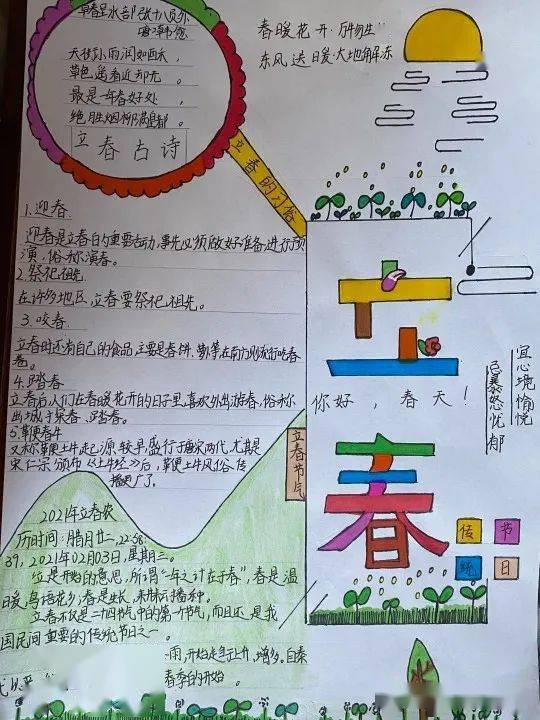 早春呈水部张十八员外
唐·韩愈
天街小雨润如酥,
草色遥看近却无。
最是一年春好处,
绝胜烟柳满皇都。
立春古诗
春暖花开·万物生
东风送暖·大地解冻
立春的习俗
1.迎春
迎春是立春的重要活动,事先必须做好准备,进行预
演,俗称演春。
2.祭祀祖先
在许多地区,立春要祭祀祖先。
3.咬春
立春时还有自己的食品,主要是春饼、
等在南方则流行吃春
卷。
4.踏春
立春后,人们在春暖花开的日子里,喜欢外出游春,俗称
出城
春、踏春。
5.鞭春牛
又称鞭土牛,起源较早,盛行于唐宋两代,尤其是
宋仁宗颁布《土牛经》后,鞭土牛风俗传
播更广了。
立春节气
立
你好,春天!
春
宜心境愉悦
忌暴怒忧郁
传 节
统 日
2021年立春农
历时间:腊月廿二,22:58:
39,2021年02月03日,星期三。
立是开始的意思,所谓“一年之计在于春”,春是温
暖,鸟语花
,春是生长,
播种。
立春不仅是二十四节气中的第一个节气,而且还是我
国民间重要的传统节日之一。
雨,开始
春季的开始。